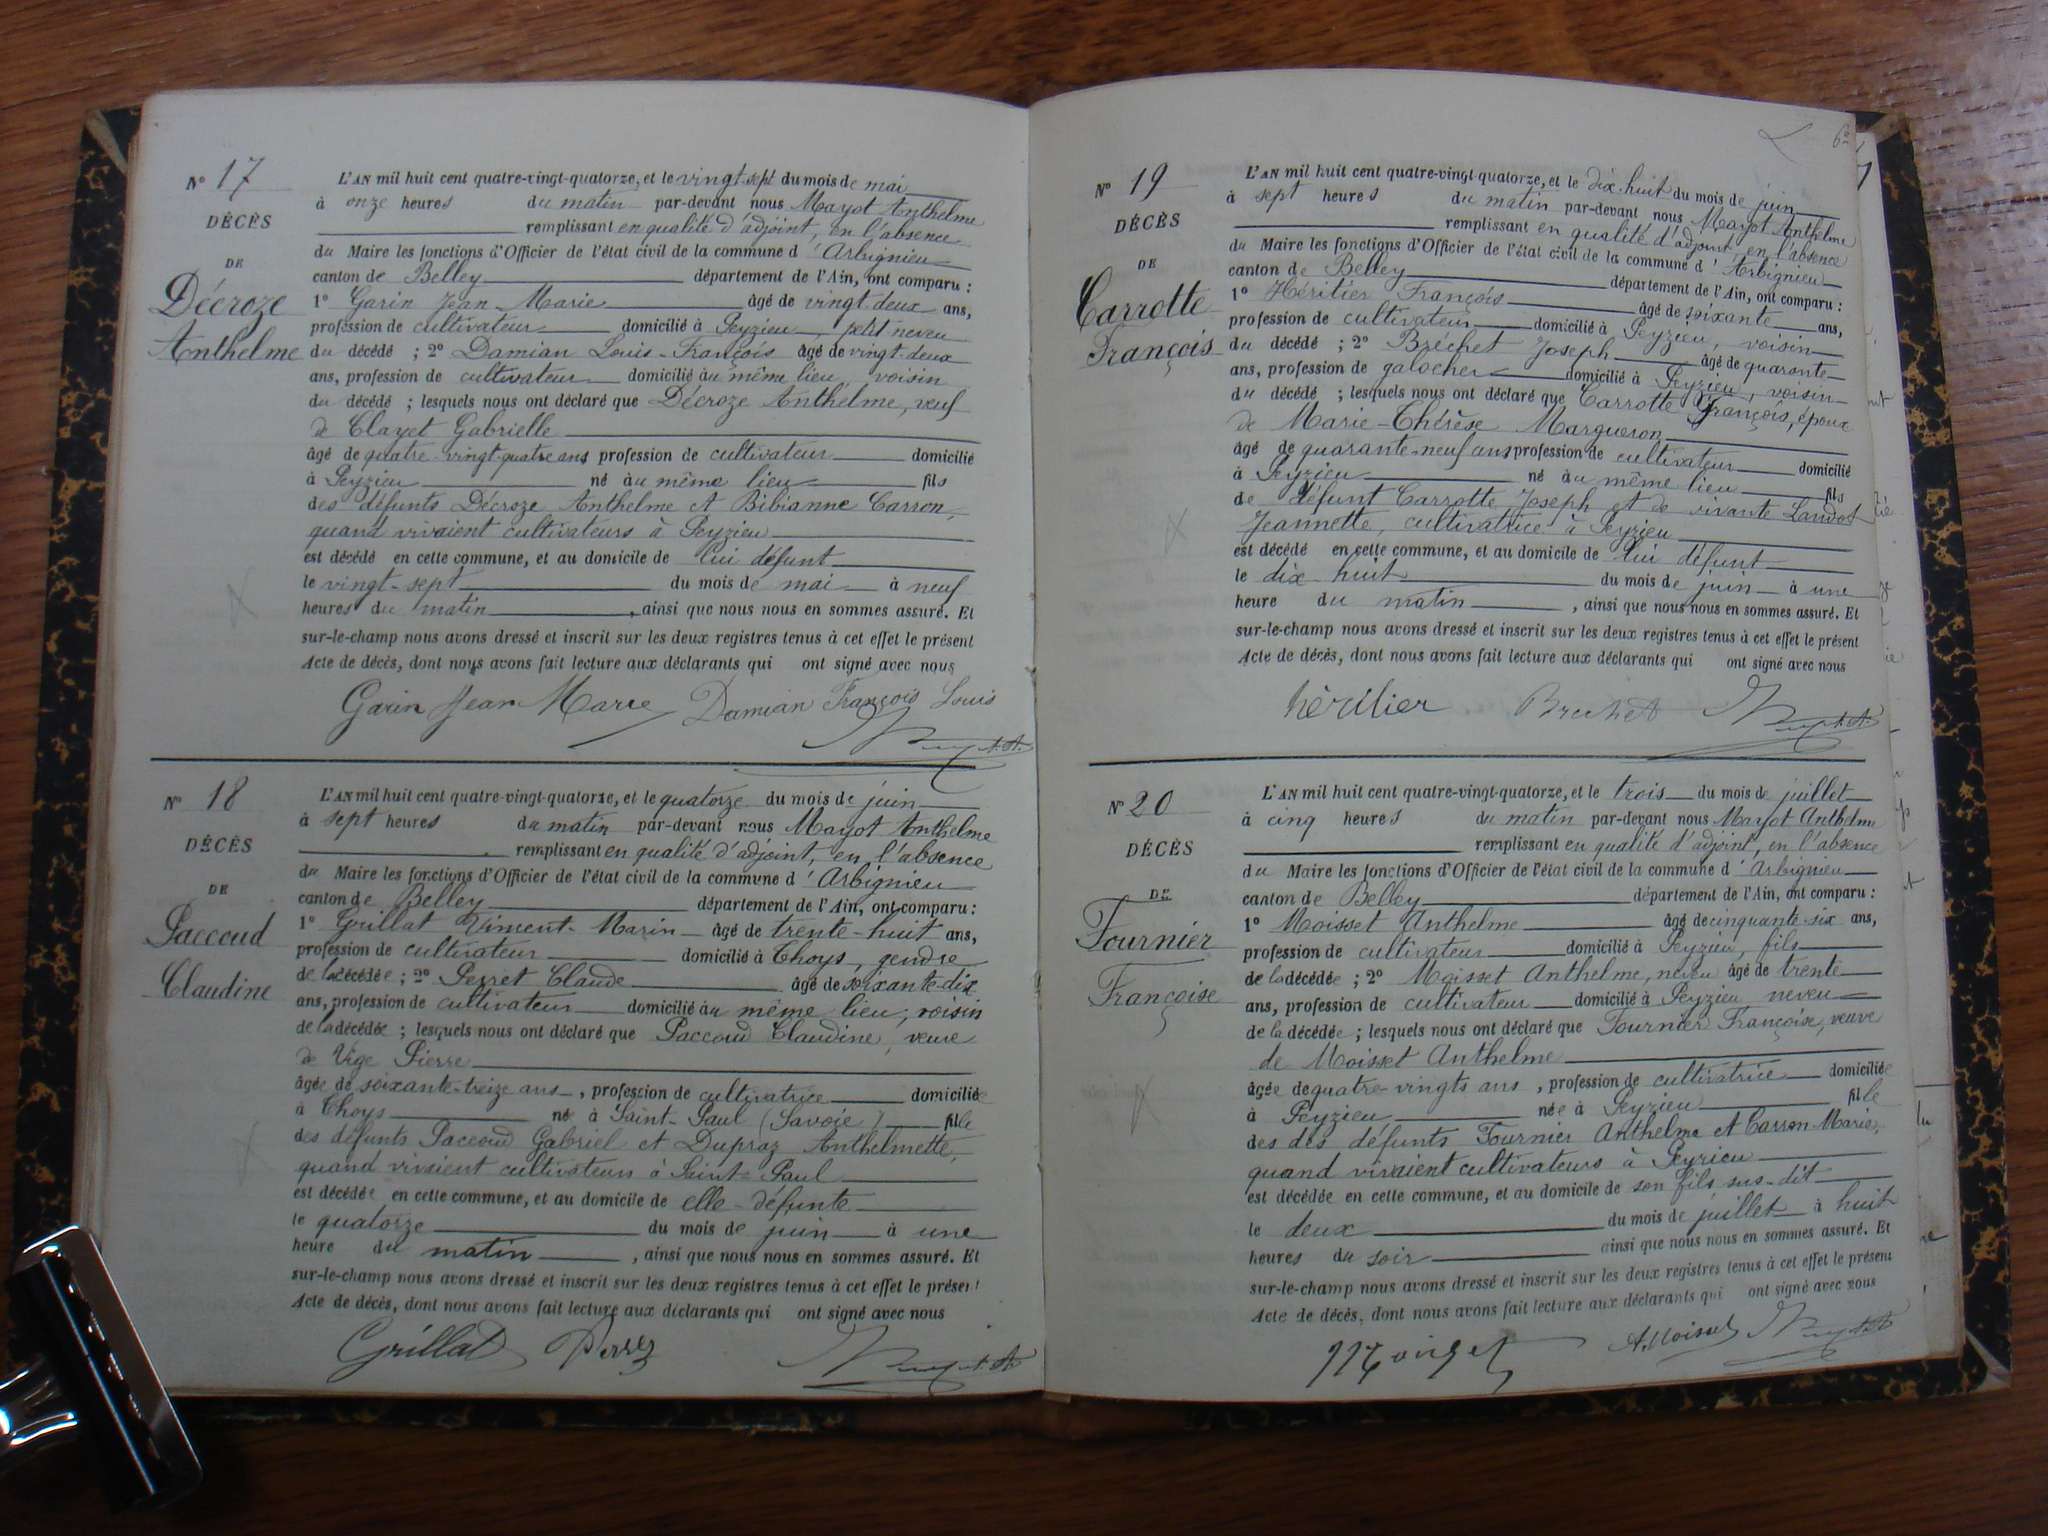 N° 17
DÉCÈS
DE
Décroze
Anthelme
L'AN mil huit cent quatre-vingt-quatorze, et le vingt-sept du mois de mai
à onze heures du matin par-devant nous Mayot Anthelme
remplissant en qualité d'adjoint, en l'absence
du Maire les fonctions d'Officier de l'état civil de la commune d'Arbignieu
canton de Belley département de l'Ain, ont comparu :
1° Garin Jean-Marie âgé de vingt-deux ans,
profession de cultivateur domicilié à Peyzieu, petit neveu
du décédé ; 2° Damian Louis-François âgé de vingt-deux
ans, profession de cultivateur domicilié au même lieu, voisin
du décédé ; lesquels nous ont déclaré que Décroze Anthelme, veuf
de Clayet Gabrielle
âgé de quatre-vingt-quatre ans profession de cultivateur domicilié
à Peyzieu né au même lieu fils
des défunts Décroze Anthelme et Bibianne Carron,
quand vivaient cultivateurs à Peyzieu
est décédé en cette commune, et au domicile de lui défunt
le vingt-sept du mois de mai à neuf
heures du matin, ainsi que nous nous en sommes assuré. Et
sur-le-champ nous avons dressé et inscrit sur les deux registres tenus à cet effet le présent
Acte de décès, dont nous avons fait lecture aux déclarants qui ont signé avec nous
Garin Jean Marie Damian François Louis
N° 18
DÉCÈS
DE
Paccoud
Claudine
L'AN mil huit cent quatre-vingt-quatorze, et le quatorze du mois de juin
à sept heures du matin par-devant nous Mayot Anthelme
remplissant en qualité d'adjoint, en l'absence
du Maire les fonctions d'Officier de l'état civil de la commune d'Arbignieu
canton de Belley département de l'Ain, ont comparu :
1° Grillat Vincent-Marin âgé de trente-huit ans,
profession de cultivateur domicilié à Thoys, gendre
de la décédée ; 2° Perret Claude âgé de soixante-dix
ans, profession de cultivateur domicilié au même lieu, voisin
de la décédée ; lesquels nous ont déclaré que Paccoud Claudine, veuve
de Vige Pierre
âgée de soixante-treize ans, profession de cultivatrice domiciliée
à Thoys née à Saint-Paul (Savoie) fille
des défunts Paccoud Gabriel et Dupraz Anthelmette,
quand vivaient cultivateurs à Saint-Paul
est décédée en cette commune, et au domicile de elle-défunte
le quatorze du mois de juin à une
heure du matin, ainsi que nous nous en sommes assuré. Et
sur-le-champ nous avons dressé et inscrit sur les deux registres tenus à cet effet le présent
Acte de décès, dont nous avons fait lecture aux déclarants qui ont signé avec nous
Grillat Perret
N° 19
DÉCÈS
DE
Carrotte
François
L'AN mil huit cent quatre-vingt-quatorze, et le dix-huit du mois de juin
à sept heures du matin par-devant nous Mayot Anthelme
remplissant en qualité d'adjoint, en l'absence
du Maire les fonctions d'Officier de l'état civil de la commune d'Arbignieu
canton de Belley département de l'Ain, ont comparu :
1° Héritier François âgé de soixante ans,
profession de cultivateur domicilié à Peyzieu, voisin
du décédé ; 2° Bréchet Joseph âgé de quarante
ans, profession de galocher domicilié à Peyzieu, voisin
du décédé ; lesquels nous ont déclaré que Carrotte François, époux
de Marie-Thérèse Margueron
âgé de quarante-neuf ans profession de cultivateur domicilié
à Peyzieu né au même lieu fils
de défunt Carrotte Joseph et de vivante Landot
Jeannette, cultivatrice à Peyzieu
est décédé en cette commune, et au domicile de lui défunt
le dix-huit du mois de juin à une
heure du matin, ainsi que nous nous en sommes assuré. Et
sur-le-champ nous avons dressé et inscrit sur les deux registres tenus à cet effet le présent
Acte de décès, dont nous avons fait lecture aux déclarants qui ont signé avec nous
héritier Brechet
N° 20
DÉCÈS
DE
Fournier
Françoise
L'AN mil huit cent quatre-vingt-quatorze, et le trois du mois de juillet
à cinq heures du matin par-devant nous Mayot Anthelme
remplissant en qualité d'adjoint, en l'absence
du Maire les fonctions d'Officier de l'état civil de la commune d'Arbignieu
canton de Belley département de l'Ain, ont comparu :
1° Moisset Anthelme âgé de cinquante-six ans,
profession de cultivateur domicilié à Peyzieu, fils
de la décédée ; 2° Moisset Anthelme, neveu âgé de trente
ans, profession de cultivateur domicilié à Peyzieu neveu
de la décédée ; lesquels nous ont déclaré que Fournier Françoise, veuve
de Moisset Anthelme
âgée de quatre-vingts ans, profession de cultivatrice domiciliée
à Peyzieu née à Peyzieu fille
des des défunts Fournier Anthelme et Carron Marie,
quand vivaient cultivateurs à Peyzieu
est décédée en cette commune, et au domicile de son fils sus-dit
le deux du mois de juillet à huit
heures du soir ainsi que nous nous en sommes assuré. Et
sur-le-champ nous avons dressé et inscrit sur les deux registres tenus à cet effet le présent
Acte de décès, dont nous avons fait lecture aux déclarants qui ont signé avec nous
Moisset A. Moisset